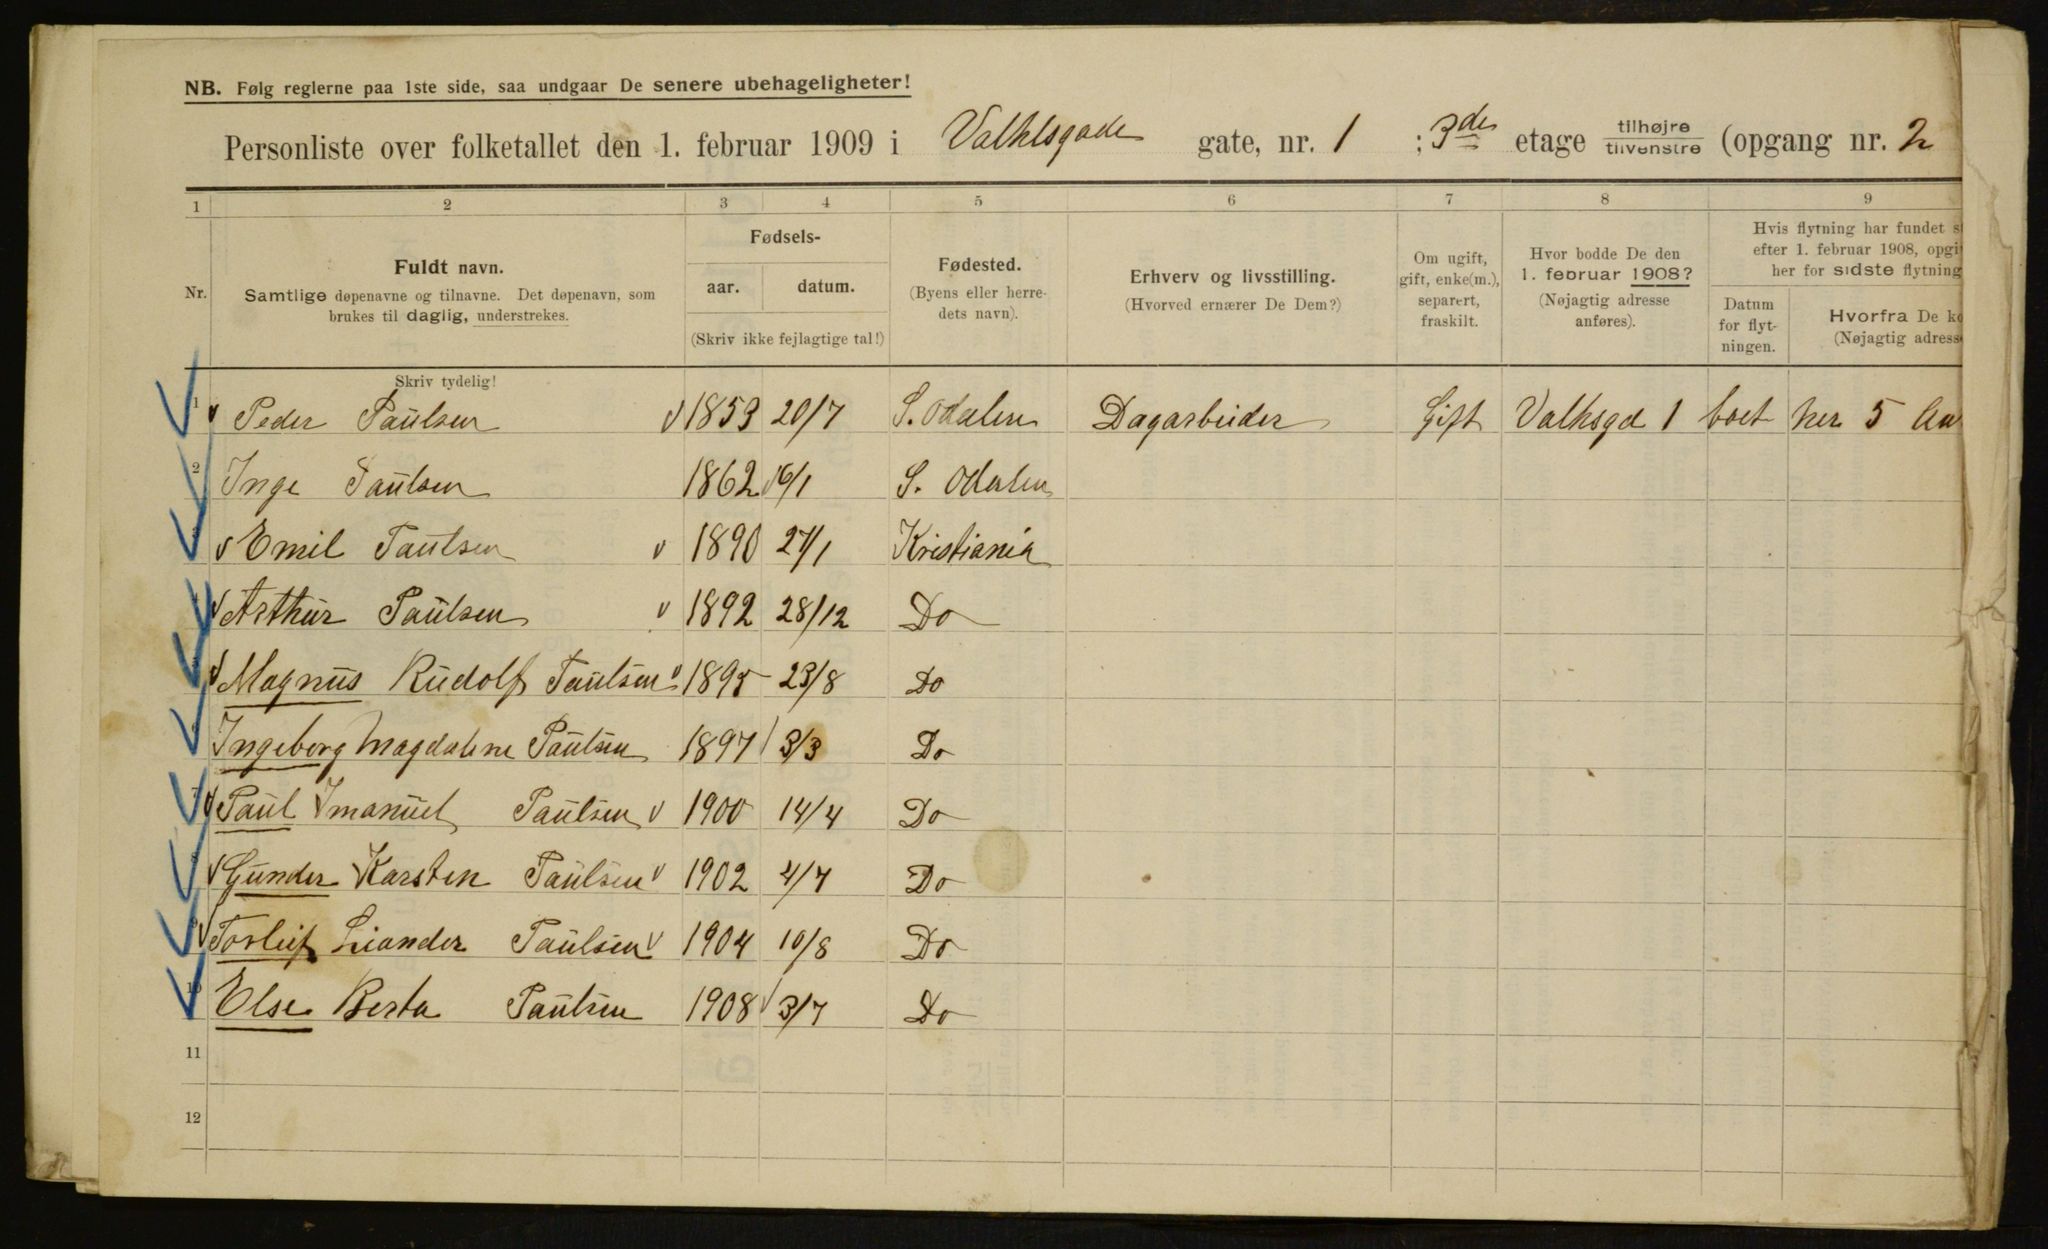 NB. Følg reglerne paa 1ste side, saa undgaar De senere ubehageligheter!
Personliste over folketallet den 1. februar 1909 i Valhlsgade gate, nr. 1 ; 3de etage tilhøjre tilvenstre (opgang nr. 2
1 2 3 4 5 6 7 8 9
Nr. Fuldt navn. Samtlige døpenavne og tilnavne. Det døpenavn, som brukes til daglig, understrekes.
Fødsels-
aar. datum.
(Skriv ikke fejlagtige tal!)
Fødested. (Byens eller herredets navn).
Erhverv og livsstilling. (Hvorved ernærer De Dem?)
Om ugift, gift, enke(m.), separert, fraskilt.
Hvor bodde De den 1. februar 1908? (Nøjagtig adresse anføres).
Hvis flytning har fundet s
efter 1. februar 1908, opgi
her for sidste flytning
Datum for flytningen.
Hvorfra De ko
(Nøjagtig adress
Skriv tydelig!
1 Peder Paulsen 1859 20/7 S. Odalen Dagarbeider Gift Valhsgd 1 boet her 5 Aa
2 Inge Paulsen 1862 16/1 S. Odalen
3 Emil Paulsen 1890 27/1 Kristiania
4 Arthur Paulsen 1892 28/12 Do
5 Magnus Rudolf Paulsen 1895 23/8 Do
6 Ingeborg Magdalene Paulsen 1897 3/3 Do
7 Paul Imanuel Paulsen 1900 14/4 Do
8 Gunder Karsten Paulsen 1902 4/7 Do
9 Torleif Liander Paulsen 1904 10/8 Do
10 Else Berta Paulsen 1908 3/7 Do
11
12